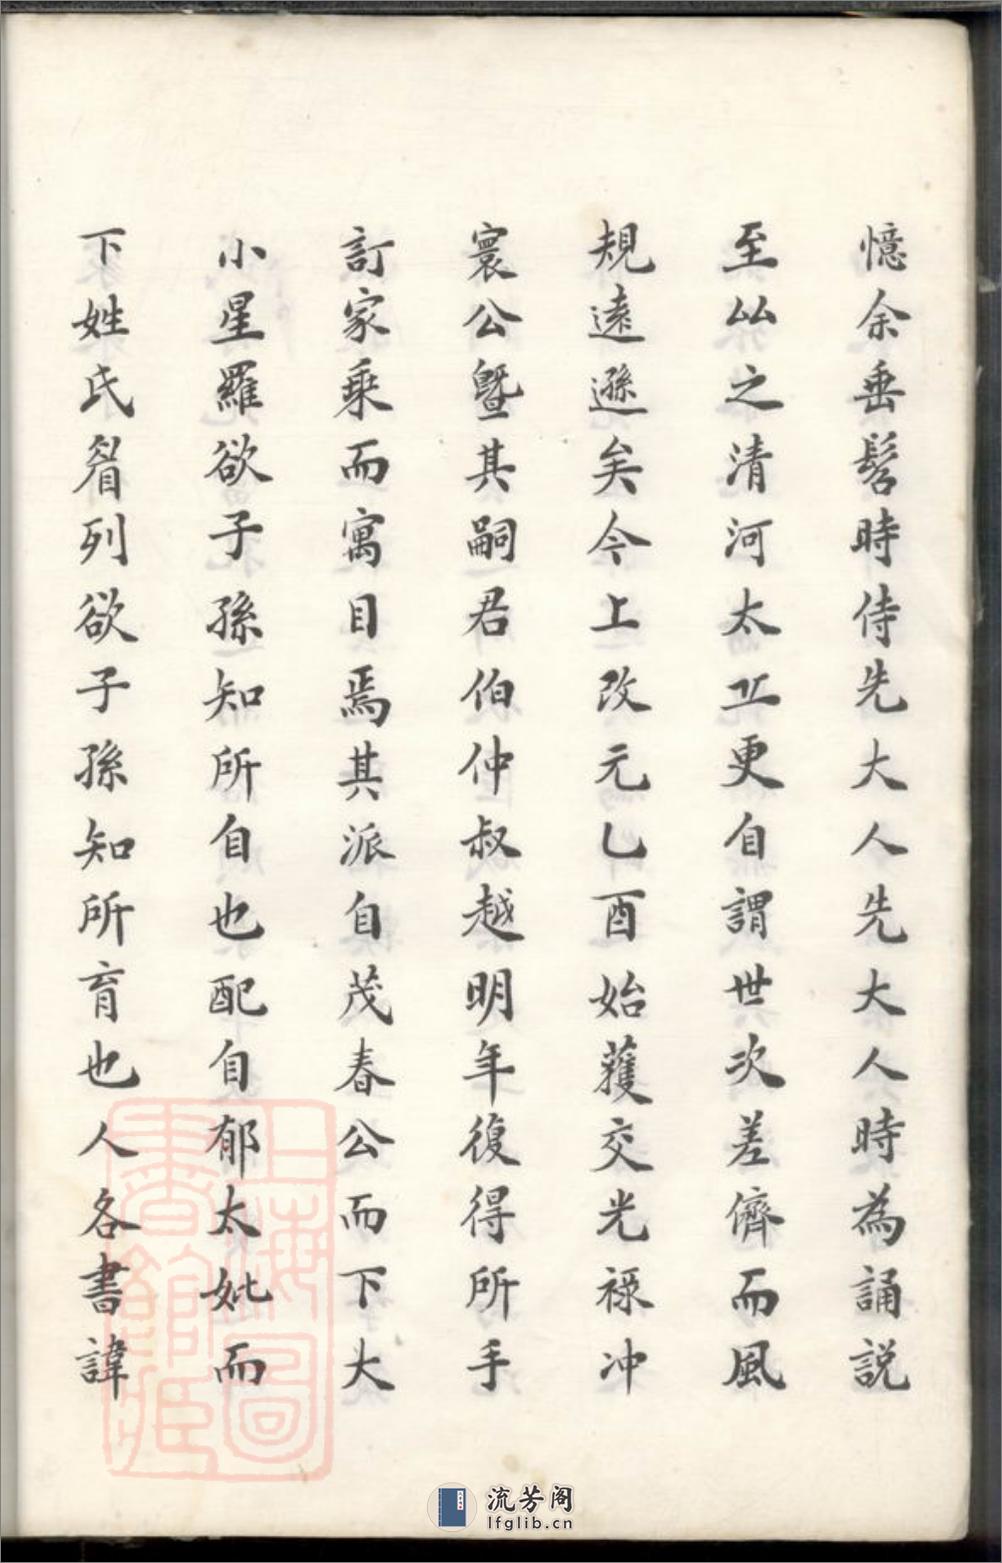 憶余垂髫時侍先大人先大人時為誦説
至𠈌之清河太丠更自謂世次差儕而風
規遠遜矣今上改元乙酉始蒦交光祿冲
寰公暨其嗣君伯仲叔越明年復得所手
訂家乘而寓目焉其派自茂春公而下大
小星羅欲子孫知所自也配自郁太妣而
下姓氏眉列欲子孫知所育也人各書諱
上海圖書館藏
流芳阁
lfglib.cn